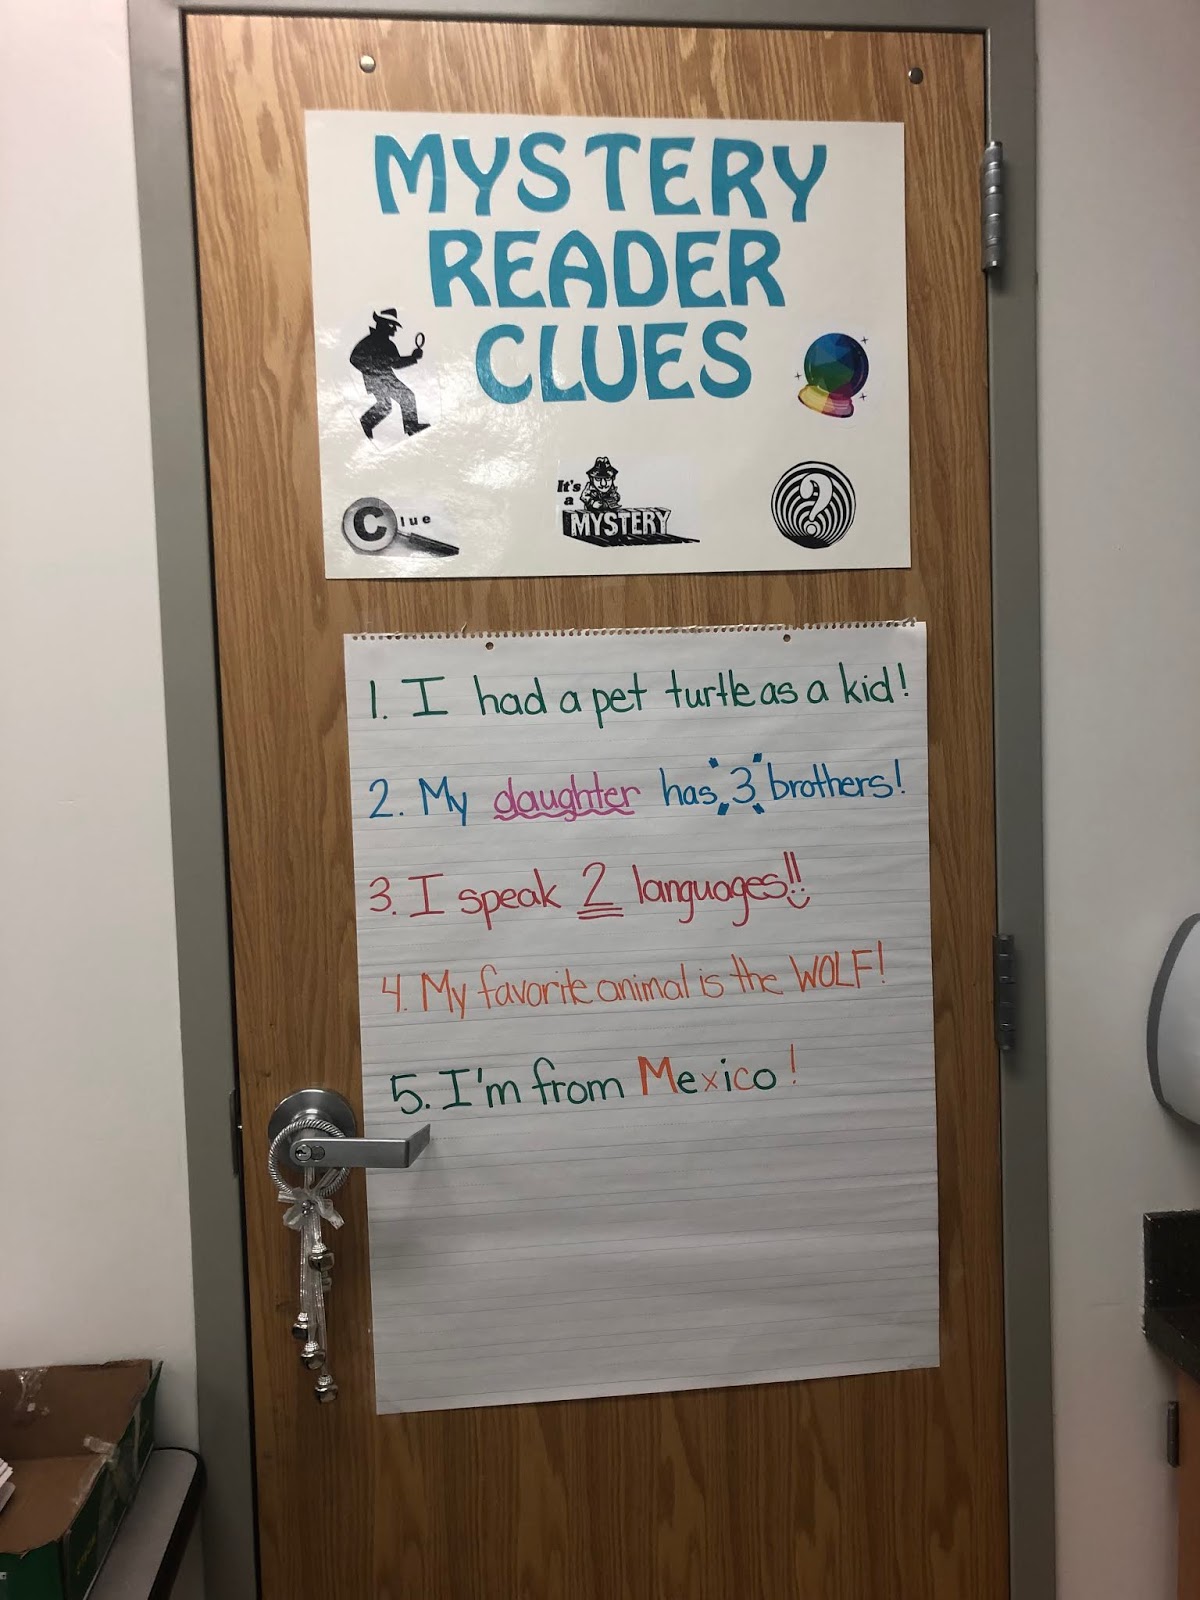 MYSTERY
READER
CLUES
Clue
It's
a
MYSTERY
?
1. I had a pet turtle as a kid!
2. My daughter has 3 brothers!
3. I speak 2 languages!!
4. My favorite animal is the WOLF!
5. I'm from Mexico!